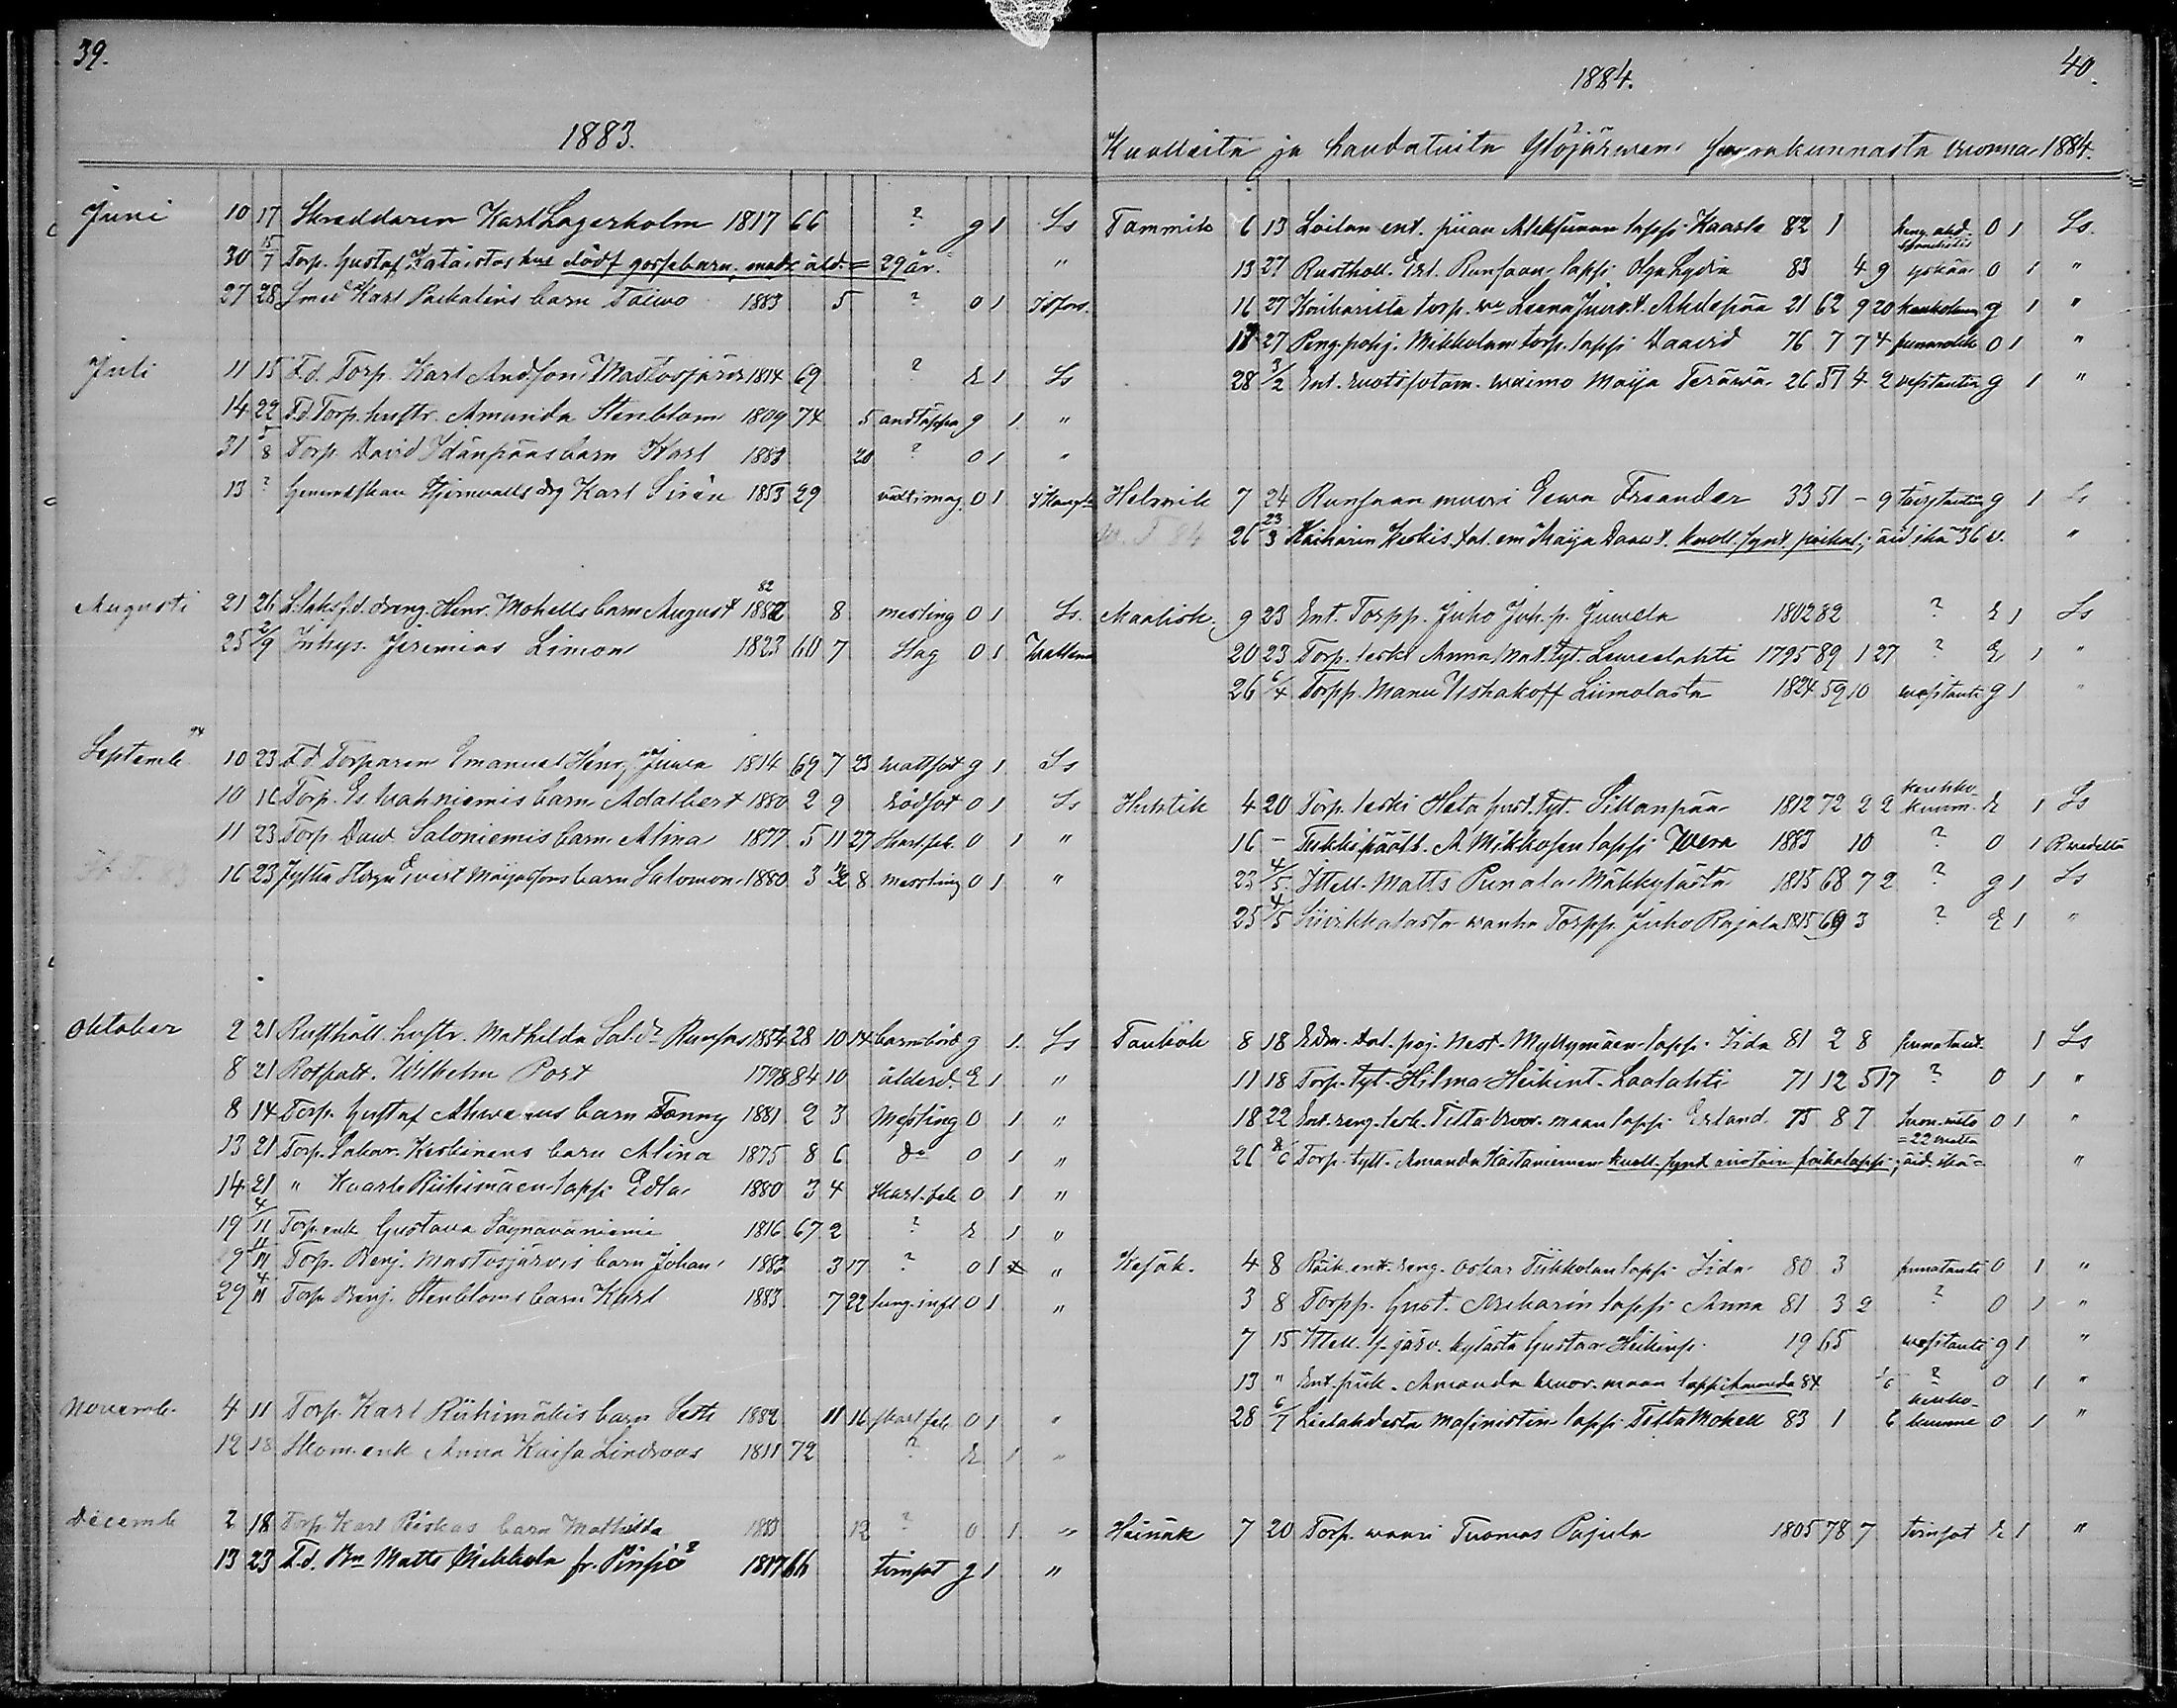 39.
1883.
Juni 10 17 Skraddaren Karl Lagerholm 1817 66 ? g 1 Ls
30 15/7 Torp. Gustaf Kataistos hus dödf gossebarn, modr ald. = 29 år. "
27 28 Smed Karl Packalins barn Toiwo 1883 5 ? o 1
Juli 11 15 F.d. Torp. Karl And.son Mastosjärvi 1814 69 ? E 1 Ls
14 22 F.d Torp. hustr. Amanda Stenblom 1809 74 5 andtäppa g 1 "
31 5/8 Torp. David Ydänpääs barn Karl 1883 20 ? o 1 "
13 ? Stjernvalls drg Karl Sirén 1853 29 o 1
Augusti 21 26 dreng. Henr. Mokells barn August 1882 82 8 mesling o 1 Ls.
25 2/9 Inhys. Jeremias Limon 1823 60 7 Slag o 1
Septemb. 10 23 F.d Torparen Emanuel Henr. Juwa 1814 69 7 23 wattsot g 1 Ls
10 16 Torp. Es. Wahniemis barn Adalbert 1880 2 9 rödsot o 1 Ls
11 23 Torp. Dav. Saloniemis barn Alina 1877 5 11 27 Skarl.feb. o 1 "
16 23 Jyllin Torgu Evert Maijasfons barn Salomon 1880 3 8 messling o 1 "
Oktober 2 21 Rusthåll. hustr. Mathilda Sal.dr Runsas 1854 28 10 14 barnsbörd g 1. Ls
8 21 Rotfatt. Wilhelm Port 1798 84 10 ålderd. E 1 "
8 14 Torp. Gustaf Ahwenus barn Fanny 1881 2 3 Messling o 1 "
13 21 Torp. Sakar. Keskinens barn Alina 1875 8 6 do o 1 "
14 21 " Kaarle Riihimäen lapsi Edla 1880 3 4 Skarl.feb o 1 "
19 4/11 Torp. enk Gustava Säynäväniemi 1816 67 2 ? E 1 "
9 4/11 Torp. Benj. Mastosjärvis barn Johan 1882 3 17 ? o 1 "
29 4/11 Torp. Benj. Stenbloms barn Karl 1883 7 22 lung.infl o 1 "
Novemb. 4 11 Torp. Karl Riihimäkis barn Seth 1882 11 16 skarl.feb o 1 "
12 18 enk Anna Kaisa Lindroos 1811 72 ? E 1 "
Decemb 2 18 Torp. Karl Piiskas barn Mathilda 1883 12 ? o 1 "
13 23 F.d. Bn Matts Mikkola fr. Pinsiö 1817 66 tvinsot g 1 "
40.
1884.
Kuolleita ja haudatuita Ylöjärwen seurakunnasta vuonna 1884.
Tammik 6 13 Loilan ent. piian Aleksiinan lapsi Kaarle 82 1 keng. ahd. o 1 Ls.
13 27 Rusthol. Erl. Runsaan lapsi Olga Lydia 83 4 9 yskään o 1 "
16 27 torp. vo Leena Juho.t. Ahdepää 21 62 9 20 g 1 "
18 27 Peng.pohj. Mikkolan torp. lapsi Daavid 76 7 7 4 punarokko o 1 "
28 3/2 Ent. ruotisotam. waimo Maija Teräwä 26 57 4 2 vesitautia g 1 "
Helmik 7 24 Runsaan muori Eewa Freander 33 51 - 9 g 1 Ls
26 23/3 Keskis. tal. em Maija Daav.t. kuoll. synt. poikal.; äid. ikä 36 v. "
Maalisk. 9 23 Ent. Torpp. Juho Juh.p. Juwela 1802 82 ? E 1 Ls
20 23 Torp. leski Anna Mat. tyt. Laurealahti 1795 89 1 27 ? E 1 "
26 6/4 Torpp. Manu Ushakoff Liimolasta 1824 59 10 vesitauti g 1 "
Huhtik 4 20 Torp. leski Heta Gust. tyt. Sillanpää 1812 72 2 2 keuhko kuum. E 1 Ls
16 - Tukkipäält. A. Mikkosen lapsi Weera 1883 10 ? o 1
23 4/5 Ittell. Matts Punala Mäkkylästä 1815 68 7 2 ? g 1 Ls
25 4/5 Siivikkalasta wanha Torpp. Juho Rajala 1815 69 3 ? E 1 "
Toukok 8 18 Edm. tal. poj. Nest. Myllymäen lapsi Iida 81 2 8 punataut. 1 Ls
11 18 Torp. tyt. Hilma Heikint. Laalahti 71 12 5 17 ? o 1 "
18 22 Ent. reng. lesk. Titta Wuor. maan lapsi Erland 75 8 7 o 1 "
= 22 vuotta
26 8/6 Torp. tytt. Amanda Kastaniemen kuoll. synt. awioton poikalapsi; äid. ikä = "
Kesäk. 4 8 Räik. ent. reng. Oskar Tiikkolan lapsi Iida 80 3 punatauti o 1 "
3 8 Torpp. Gust. Anckarin lapsi Anna 81 3 2 ? o 1 "
7 15 Ittell. Y-järv. kylästä Gustaa Heikinp. 19 65 vesitauti g 1 "
13 " Ent. piik. Amanda Wuor.maan lapsi Amanda 84 1/6 ? o 1 "
28 6/7 Lielahdesta Masinistin lapsi Titta Mokell 83 1 6 keuhko-kuume o 1 "
Heinäk 7 20 Torp. waari Tuomas Pajula 1805 78 7 tvinsot E 1 "